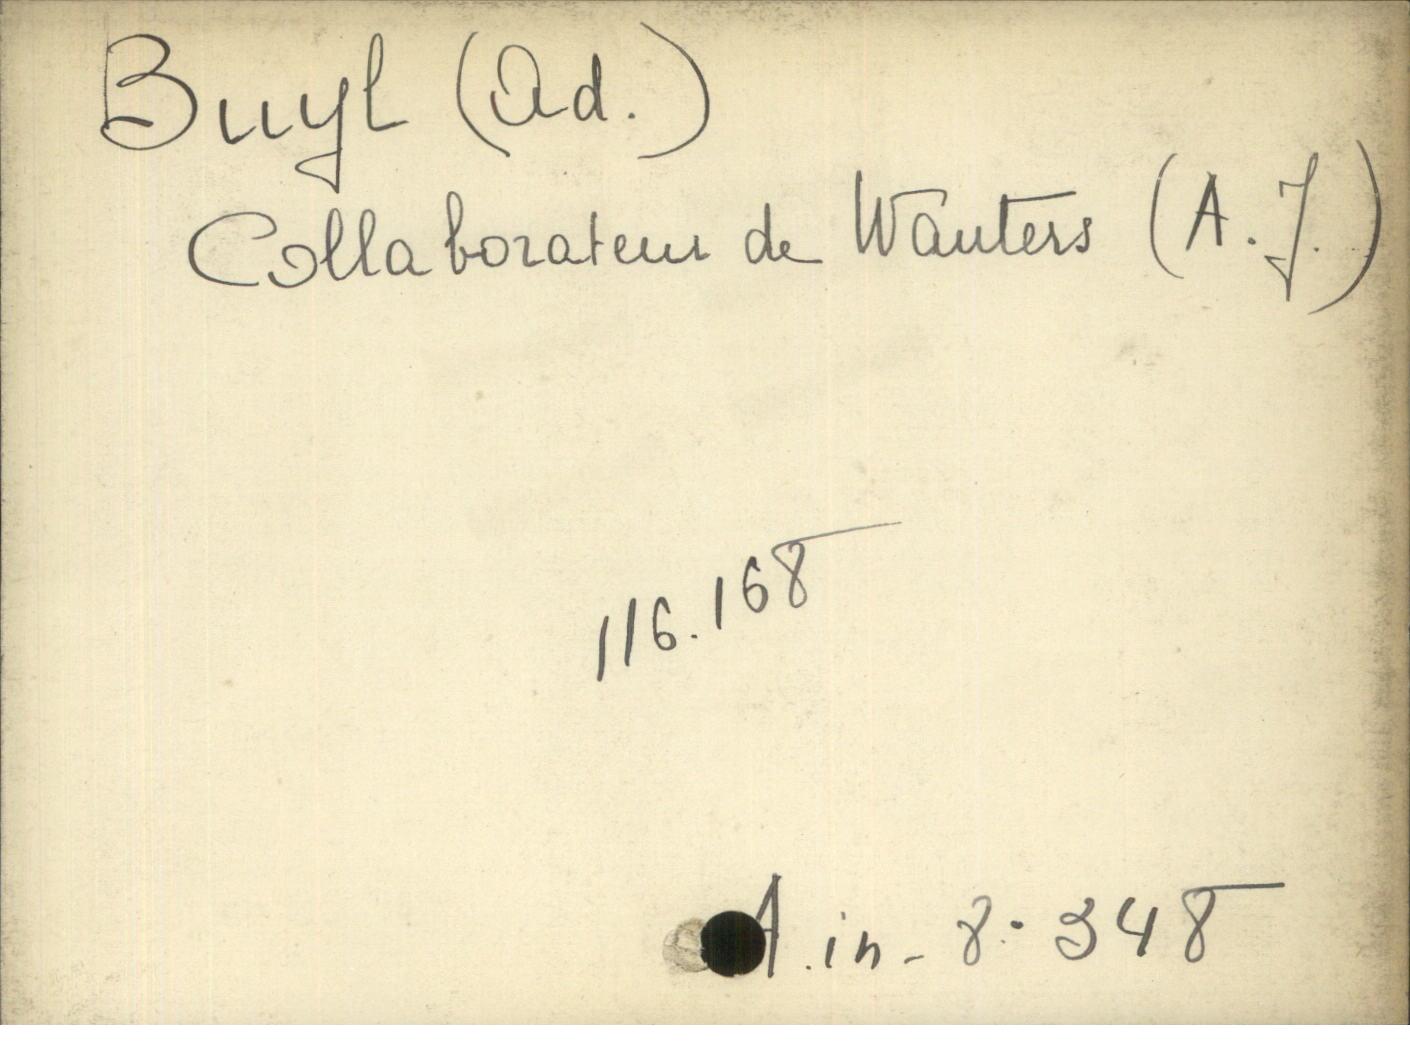 Buyl (Ad.)
Collaborateur de Wauters (A. J.)
116.168
A.in-8.348